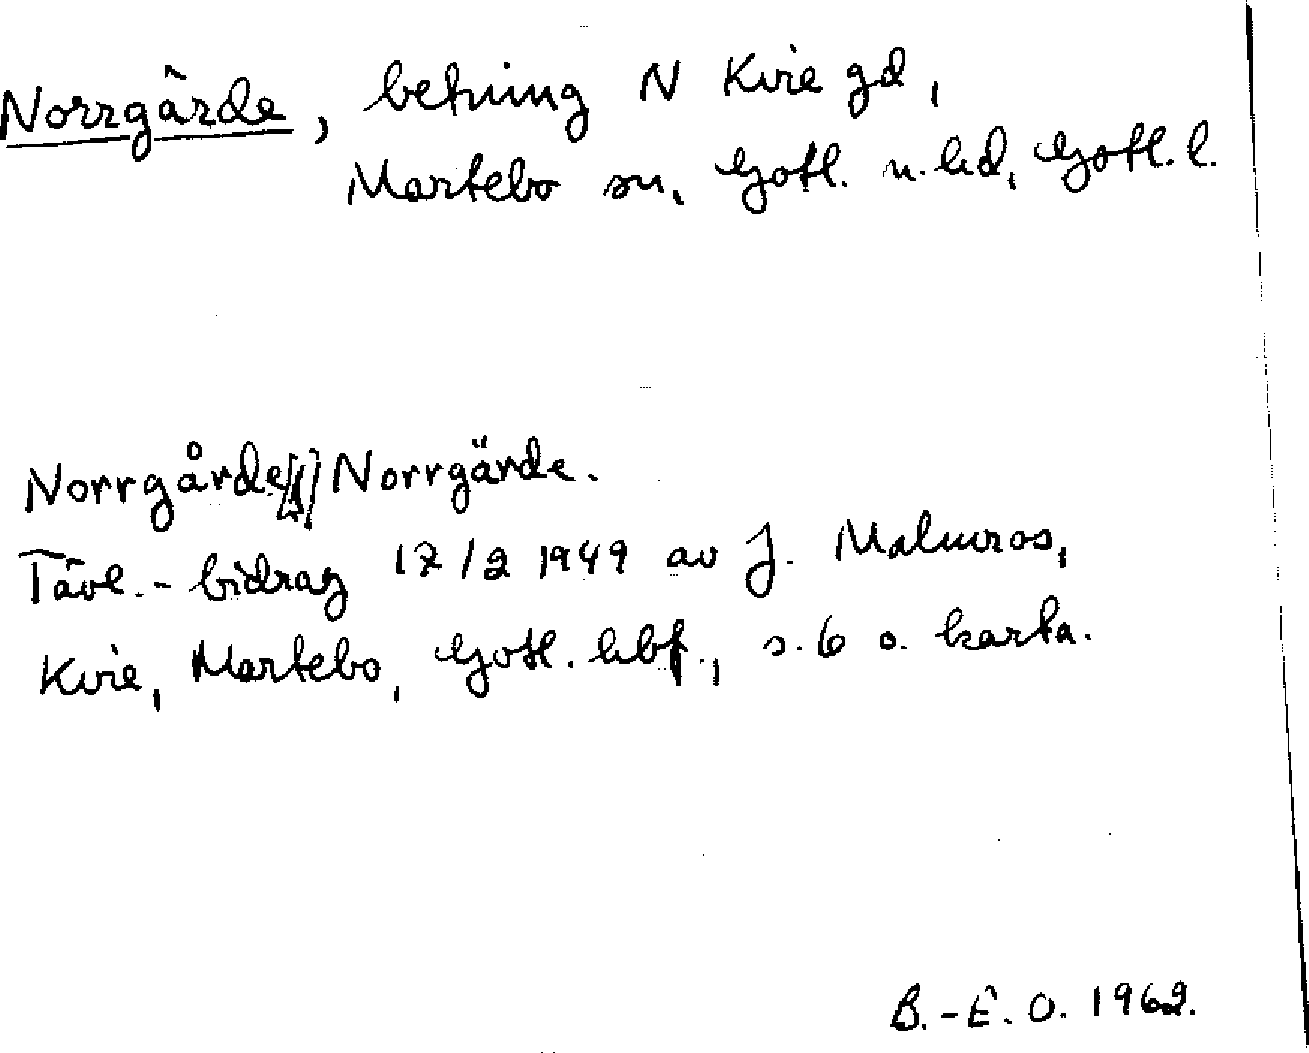 Norrgärde, betning N Kvie gd,
Martebo sn, Gotl. n. hd, Gotl. l.
Norrgårde, Norrgärde.
Tävl.-bidrag 17/2 1949 av J. Malmros,
Kvie, Martebo, Gotl. hbf., s. 6 o. karta.
B.-E. O. 1962.